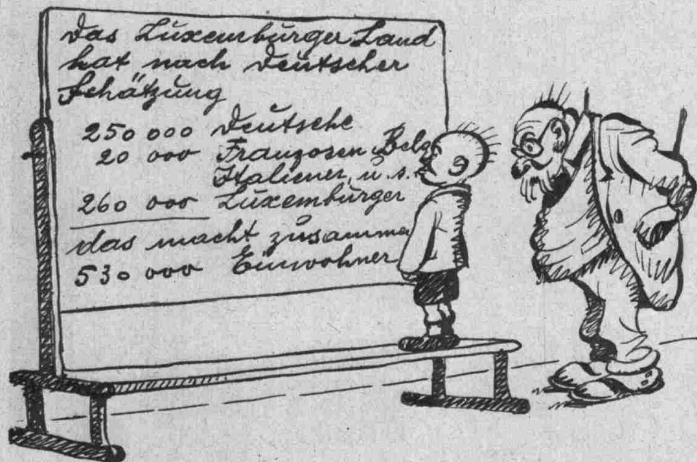 Das Luxemburger Land
hat nach deutscher
Schätzung
250 000 Deutsche
20 000 Franzosen, Belg
Italiener, u. s.
260 000 Luxemburger
das macht zusamme
530 000 Einwohner